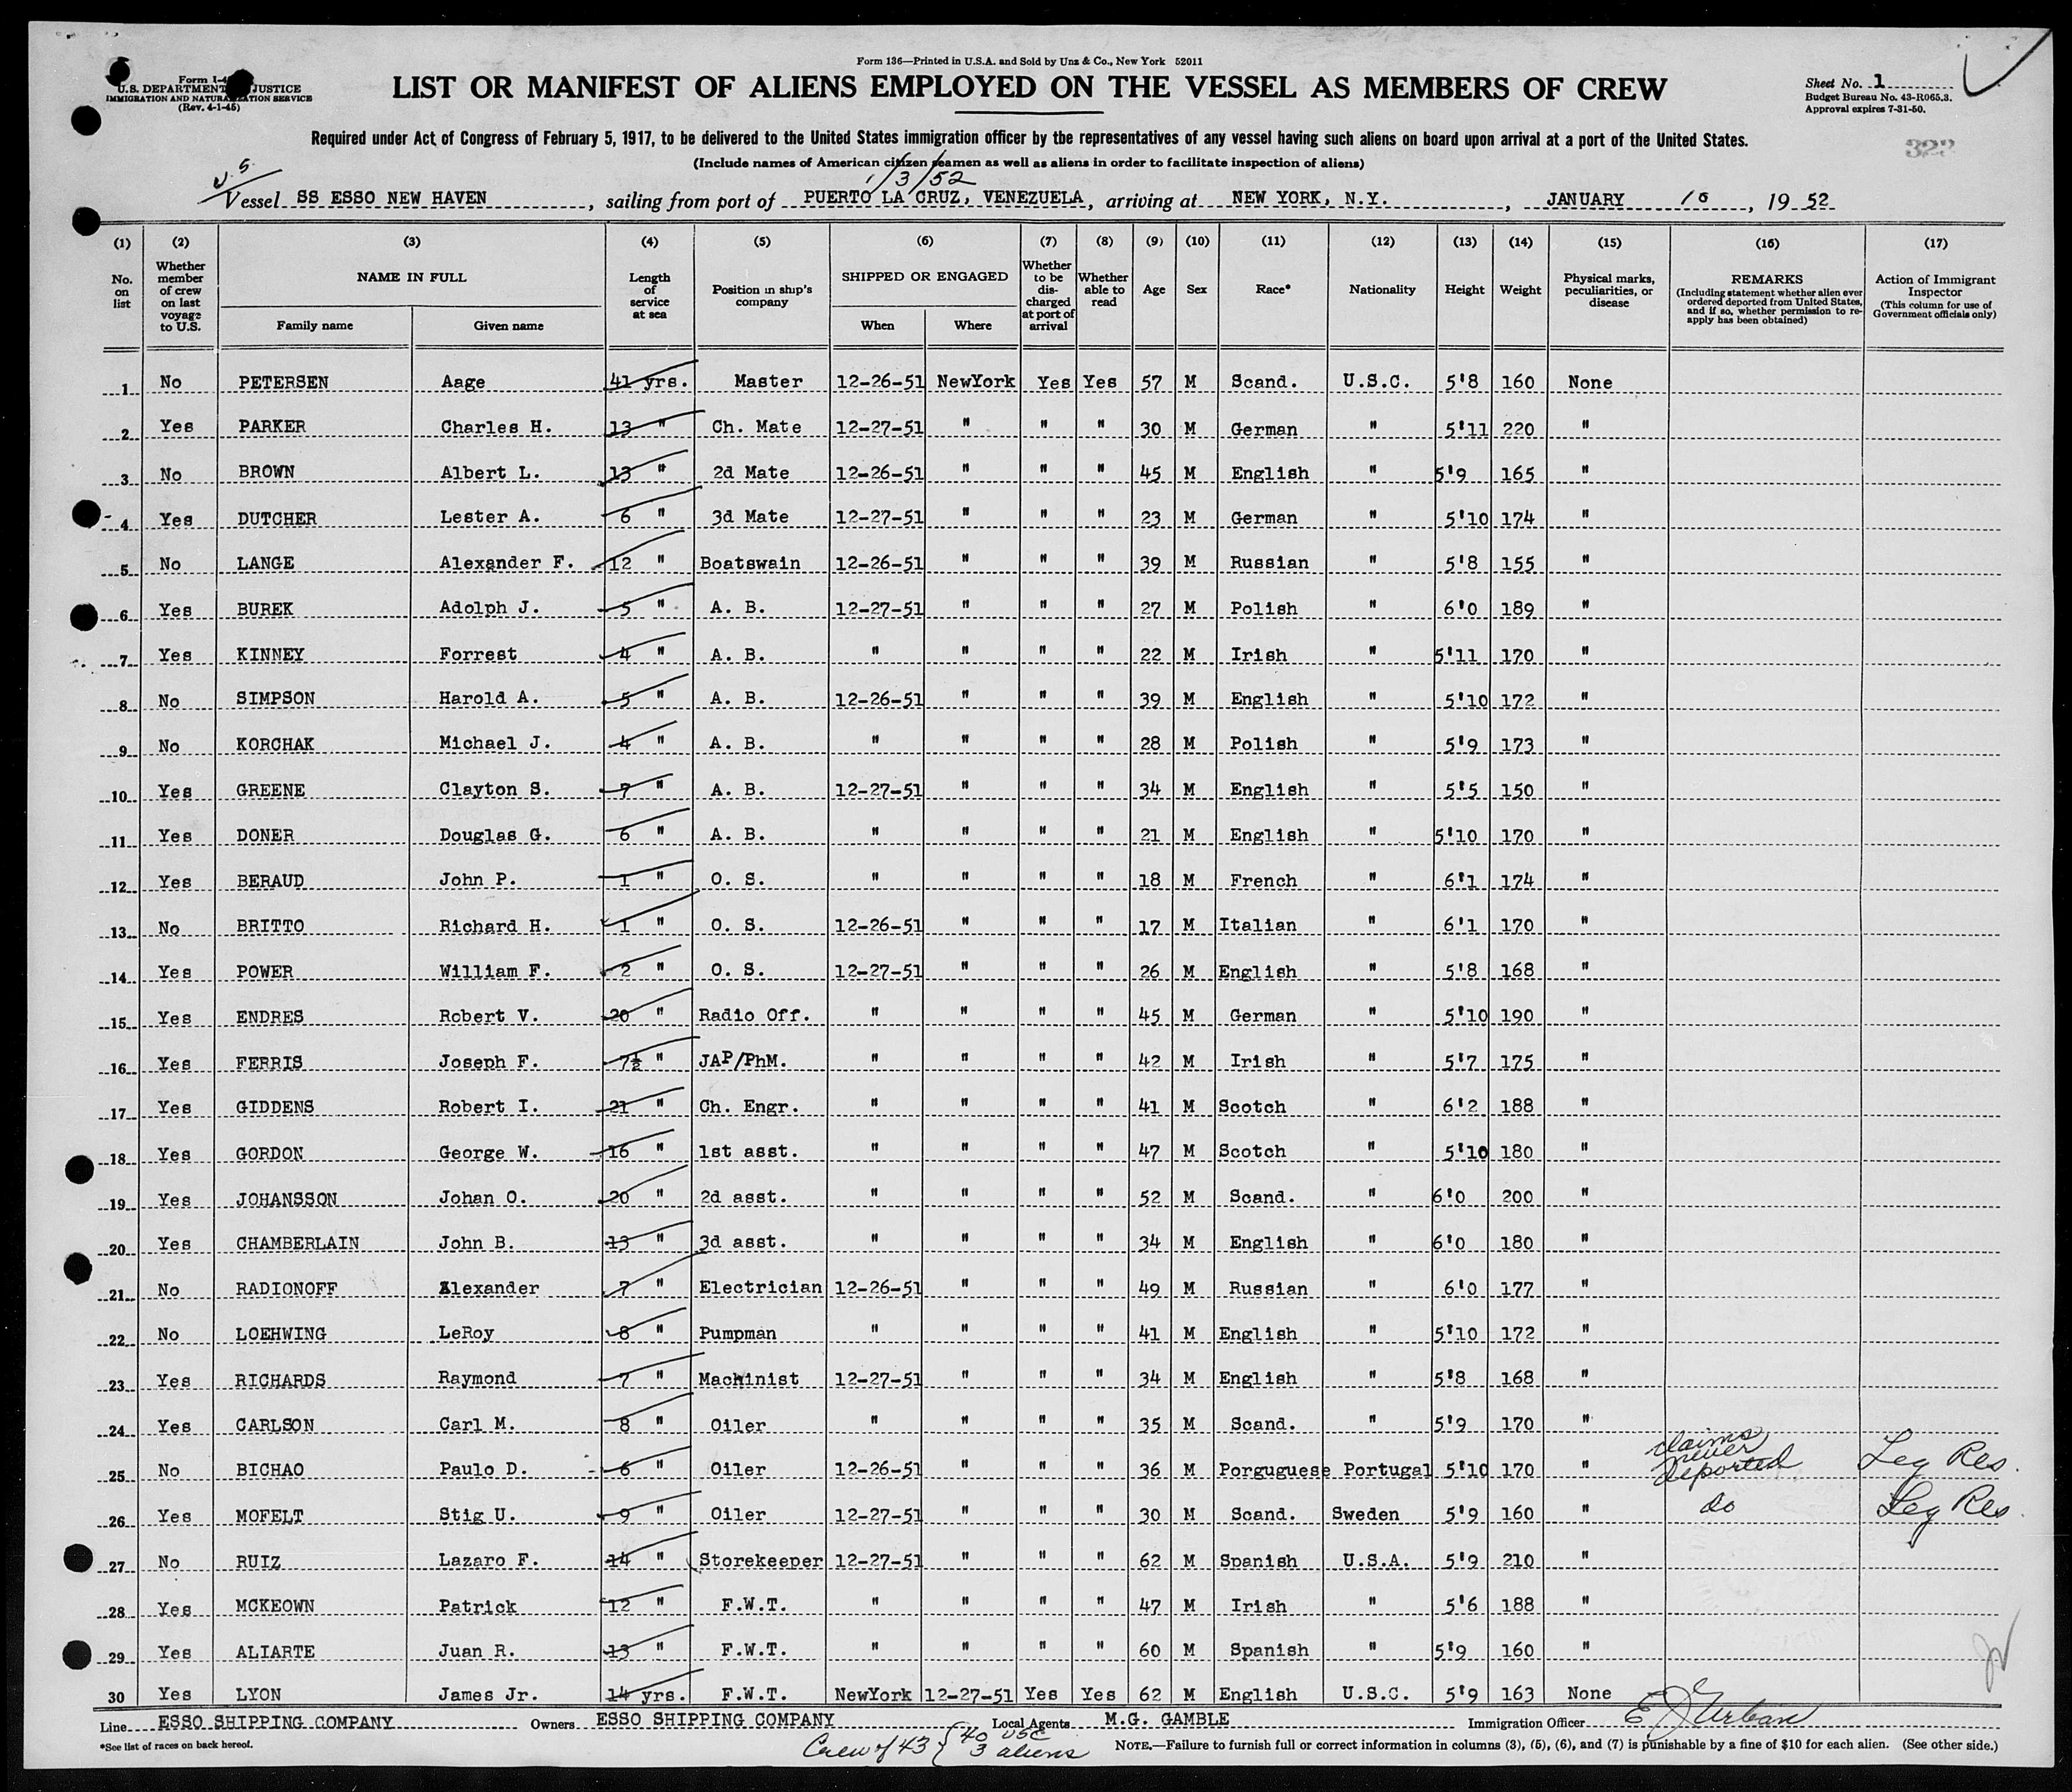 Form 136—Printed in U.S.A. and Sold by Unz & Co., New York 52011
Form I-4
U.S. DEPARTMENT JUSTICE
IMMIGRATION AND NATURALIZATION SERVICE
(Rev. 4-1-45)
LIST OR MANIFEST OF ALIENS EMPLOYED ON THE VESSEL AS MEMBERS OF CREW
Sheet No. 1
Budget Bureau No. 43-R065.3.
Approval expires 7-31-50.
Required under Act of Congress of February 5, 1917, to be delivered to the United States immigration officer by the representatives of any vessel having such aliens on board upon arrival at a port of the United States.
322
(Include names of American citizen seamen as well as aliens in order to facilitate inspection of aliens)
U.S 1/3/52
Vessel SS ESSO NEW HAVEN, sailing from port of PUERTO LA CRUZ, VENEZUELA, arriving at NEW YORK, N.Y., JANUARY 10, 1952
(1) (2) (3) (4) (5) (6) (7) (8) (9) (10) (11) (12) (13) (14) (15) (16) (17)
No. on list
Whether member of crew on last voyage to U.S.
NAME IN FULL
Family name Given name
Length of service at sea
Position in ship's company
SHIPPED OR ENGAGED
When Where
Whether to be discharged at port of arrival
Whether able to read
Age
Sex
Race*
Nationality
Height
Weight
Physical marks, peculiarities, or disease
REMARKS
(Including statement whether alien ever ordered deported from United States, and if so, whether permission to re-apply has been obtained)
Action of Immigrant Inspector
(This column for use of Government officials only)
1 No PETERSEN Aage 41 yrs. Master 12-26-51 NewYork Yes Yes 57 M Scand. U.S.C. 5'8 160 None
2 Yes PARKER Charles H. 13 " Ch. Mate 12-27-51 " " " 30 M German " 5'11 220 "
3 No BROWN Albert L. 13 " 2d Mate 12-26-51 " " " 45 M English " 5'9 165 "
4 Yes DUTCHER Lester A. 6 " 3d Mate 12-27-51 " " " 23 M German " 5'10 174 "
5 No LANGE Alexander F. 12 " Boatswain 12-26-51 " " " 39 M Russian " 5'8 155 "
6 Yes BUREK Adolph J. 5 " A. B. 12-27-51 " " " 27 M Polish " 6'0 189 "
7 Yes KINNEY Forrest 4 " A. B. " " " " 22 M Irish " 5'11 170 "
8 No SIMPSON Harold A. 5 " A. B. 12-26-51 " " " 39 M English " 5'10 172 "
9 No KORCHAK Michael J. 4 " A. B. " " " " 28 M Polish " 5'9 173 "
10 Yes GREENE Clayton S. 7 " A. B. 12-27-51 " " " 34 M English " 5'5 150 "
11 Yes DONER Douglas G. 6 " A. B. " " " " 21 M English " 5'10 170 "
12 Yes BERAUD John P. 1 " O. S. " " " " 18 M French " 6'1 174 "
13 No BRITTO Richard H. 1 " O. S. 12-26-51 " " " 17 M Italian " 6'1 170 "
14 Yes POWER William F. 2 " O. S. 12-27-51 " " " 26 M English " 5'8 168 "
15 Yes ENDRES Robert V. 20 " Radio Off. " " " " 45 M German " 5'10 190 "
16 Yes FERRIS Joseph F. 7½ " JAP/PhM. " " " " 42 M Irish " 5'7 175 "
17 Yes GIDDENS Robert I. 21 " Ch. Engr. " " " " 41 M Scotch " 6'2 188 "
18 Yes GORDON George W. 16 " 1st asst. " " " " 47 M Scotch " 5'10 180 "
19 Yes JOHANSSON Johan O. 20 " 2d asst. " " " " 52 M Scand. " 6'0 200 "
20 Yes CHAMBERLAIN John B. 13 " 3d asst. " " " " 34 M English " 6'0 180 "
21 No RADIONOFF Alexander 7 " Electrician 12-26-51 " " " 49 M Russian " 6'0 177 "
22 No LOEHWING LeRoy 8 " Pumpman " " " " 41 M English " 5'10 172 "
23 Yes RICHARDS Raymond 7 " Machinist 12-27-51 " " " 34 M English " 5'8 168 "
24 Yes CARLSON Carl M. 8 " Oiler " " " " 35 M Scand. " 5'9 170 "
25 No BICHAO Paulo D. 6 " Oiler 12-26-51 " " " 36 M Porguguese Portugal 5'10 170 " claims never deported Leg Res.
26 Yes MOFELT Stig U. 9 " Oiler 12-27-51 " " " 30 M Scand. Sweden 5'9 160 " do Leg Res
27 No RUIZ Lazaro F. 14 " Storekeeper 12-27-51 " " " 62 M Spanish U.S.A. 5'9 210 "
28 Yes MCKEOWN Patrick 12 " F.W.T. " " " " 47 M Irish " 5'6 188 "
29 Yes ALIARTE Juan R. 13 " F.W.T. " " " " 60 M Spanish " 5'9 160 "
30 Yes LYON James Jr. 14 yrs. F.W.T. NewYork 12-27-51 Yes Yes 62 M English U.S.C. 5'9 163 None
Line ESSO SHIPPING COMPANY Owners ESSO SHIPPING COMPANY Local Agents M.G. GAMBLE Immigration Officer E J Urban
*See list of races on back hereof.
Crew of 43 { 40 USC
3 aliens
NOTE.—Failure to furnish full or correct information in columns (3), (5), (6), and (7) is punishable by a fine of $10 for each alien. (See other side.)